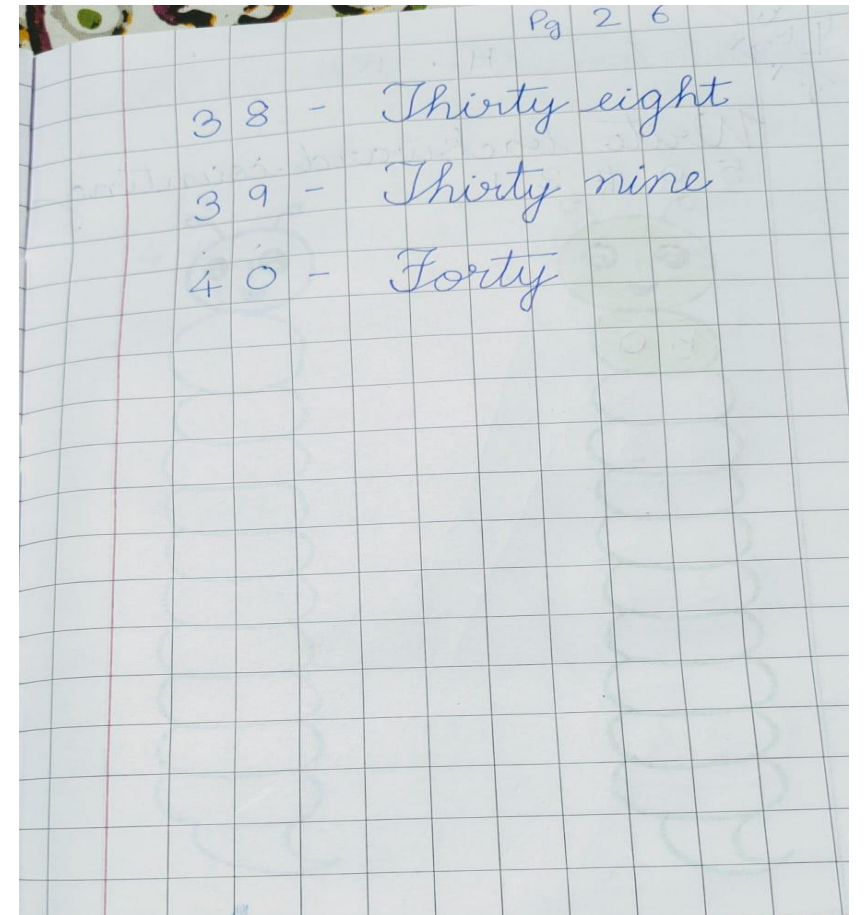 Pg 26
38 - Thirty eight
39 - Thirty nine
40 - Forty